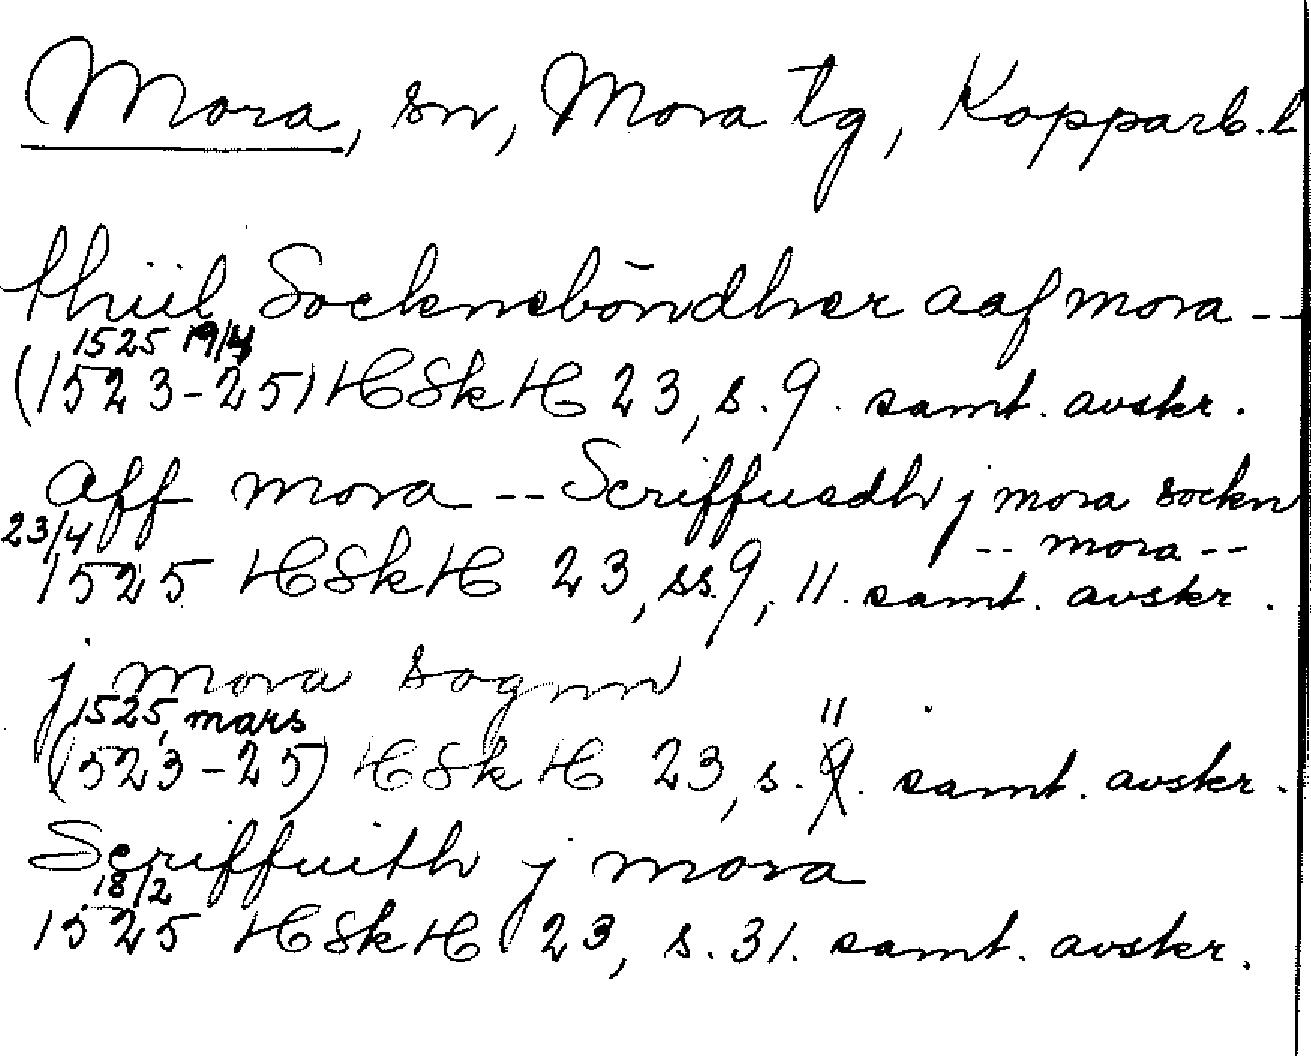 Mora, sn, Mora tg, Kopparb. l
thiil Socknebōndher aaf mora --
1525 19/4
(1523-25) HSkH 23, s. 9. samt. avskr.
Aff mora -- Scriffuedh j mora sockn
-- mora --
23/4
1525 HSkH 23, ss. 9, 11. samt. avskr.
j mora sognn
1525, mars 11
(1523-25) HSkH 23, s. 9. samt. avskr.
Scriffuith j mora
18/2
1525 HSkH 23, s. 31. samt. avskr.